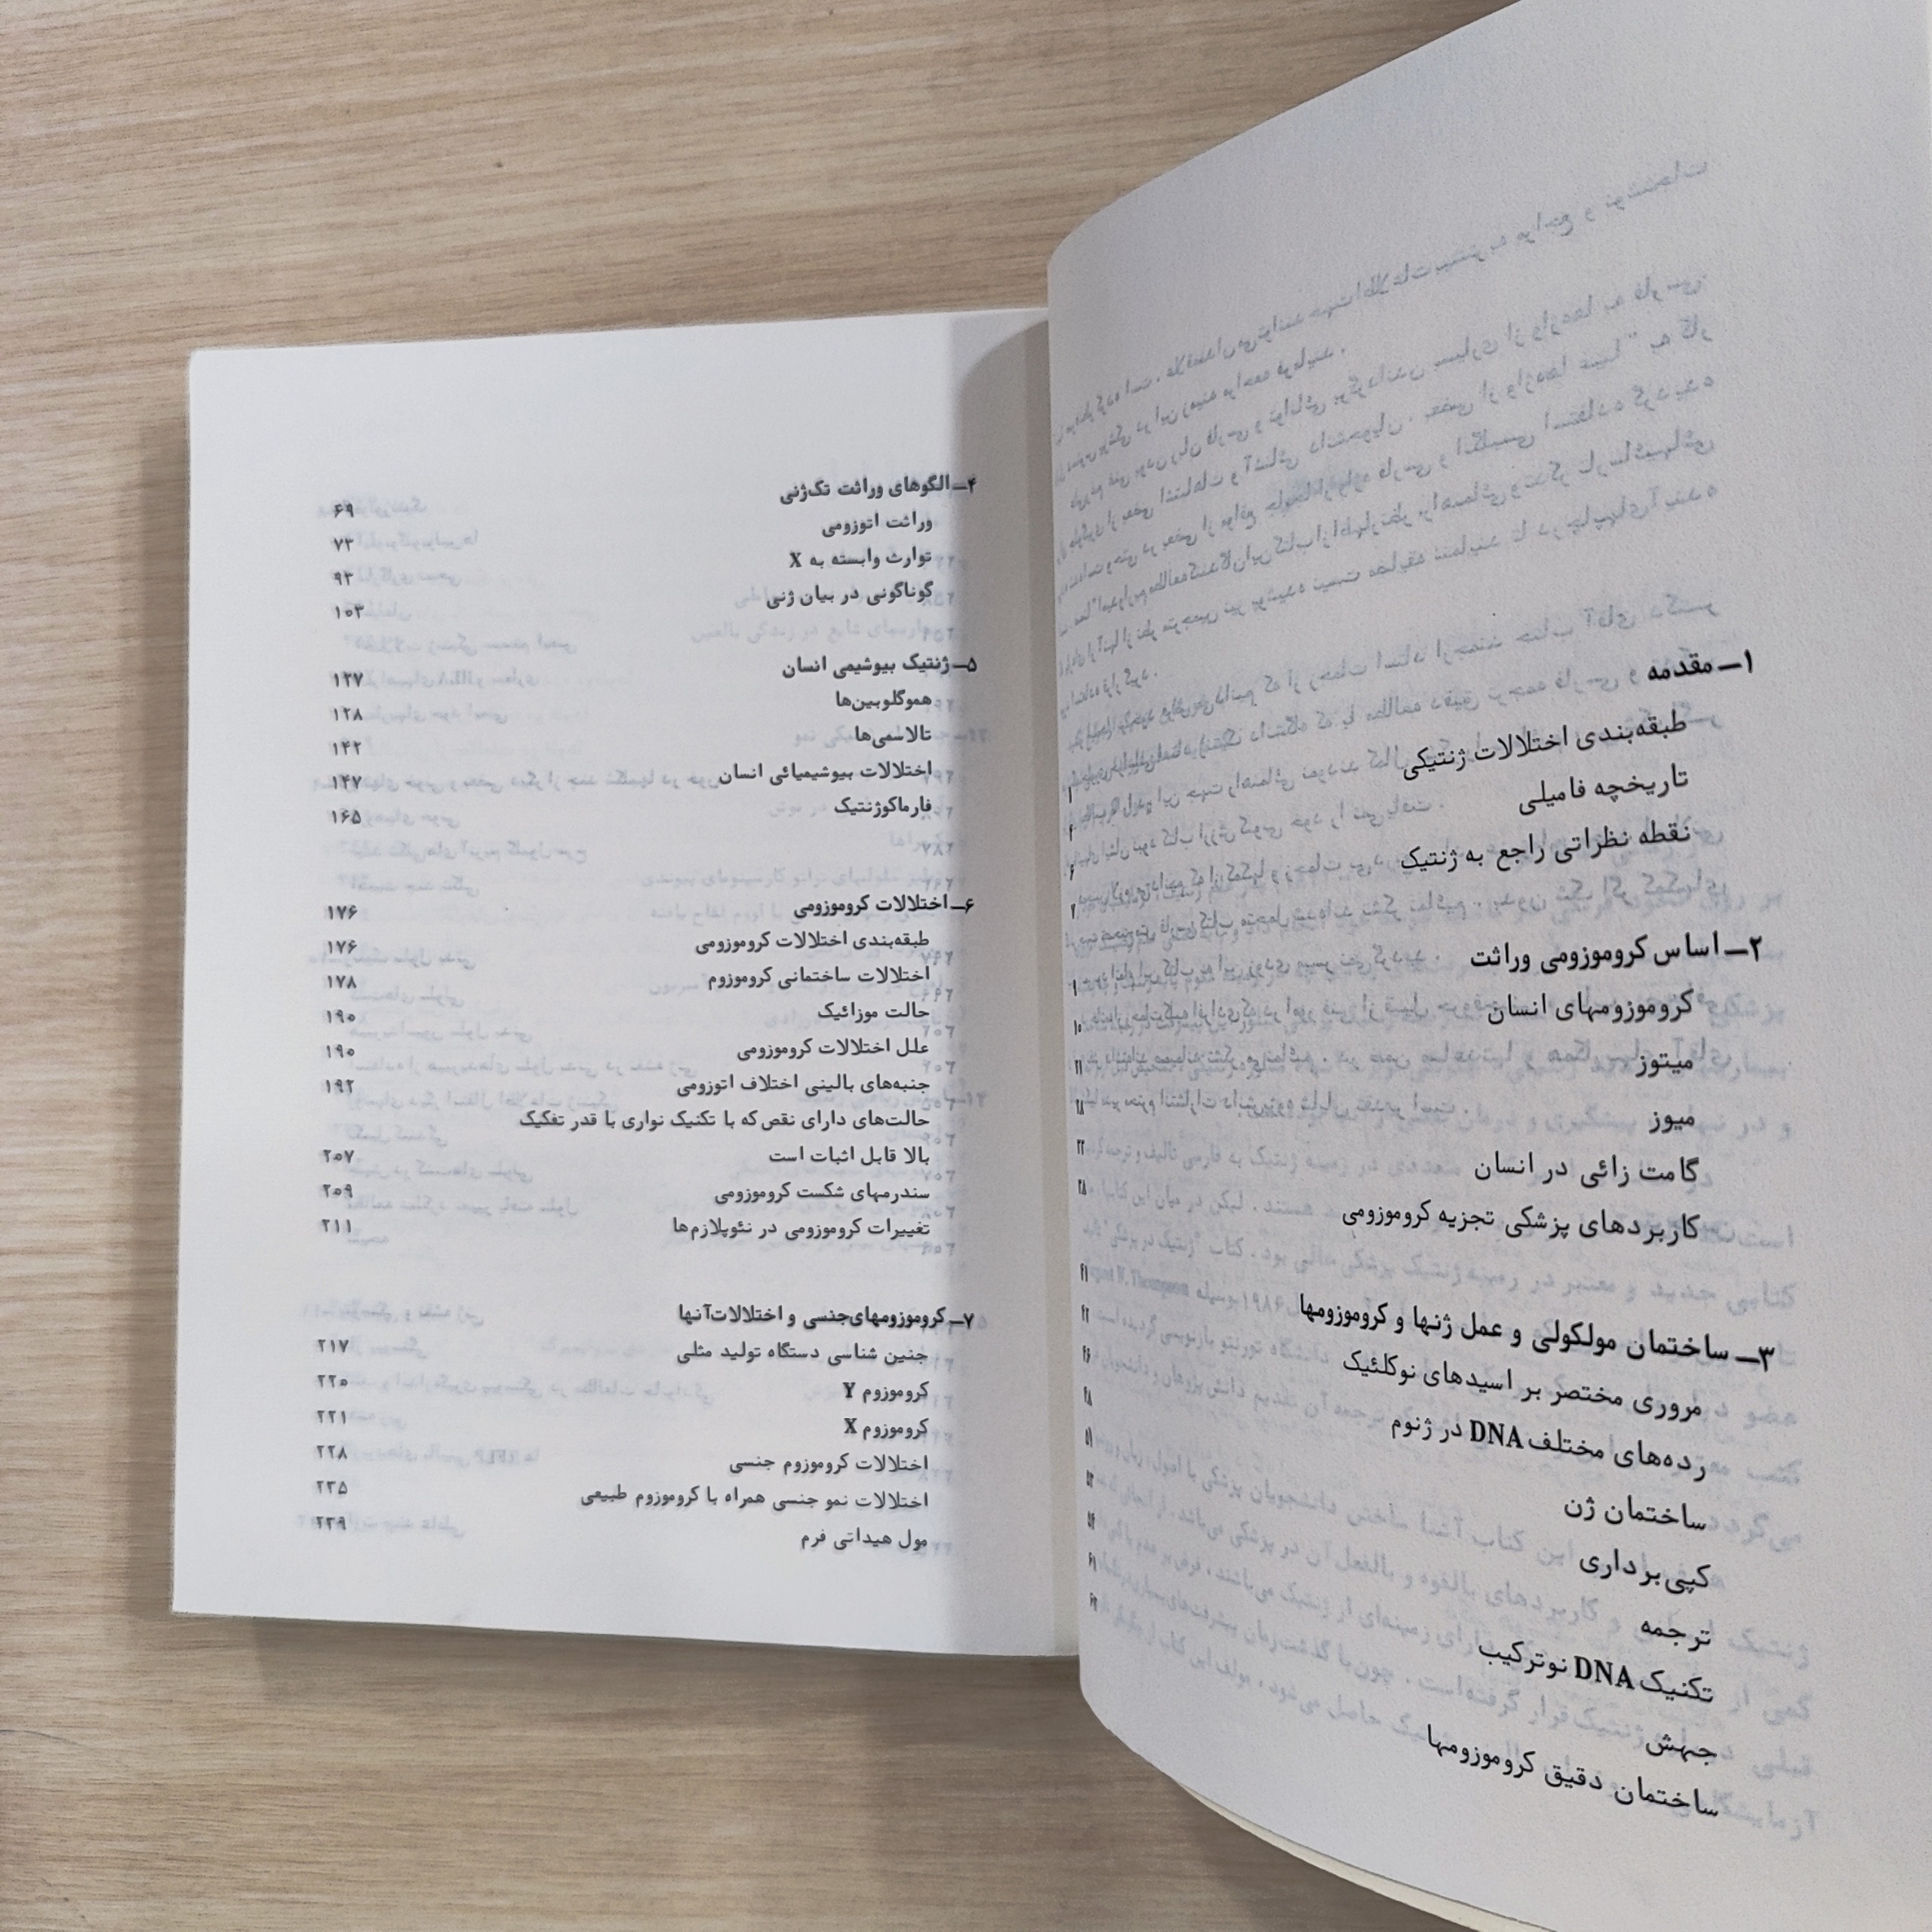 ۱ــ مقدمه
طبقه‌بندی اختلالات ژنتیکی
تاریخچه فامیلی
نقطه نظراتی راجع به ژنتیک
۲ــ اساس کروموزومی وراثت
کروموزومهای انسان
میتوز
میوز
گامت زائی در انسان
کاربردهای پزشکی تجزیه کروموزومی
۳ــ ساختمان مولکولی و عمل ژنها و کروموزومها
مروری مختصر بر اسیدهای نوکلئیک
رده‌های مختلف DNA در ژنوم
ساختمان ژن
کپی‌برداری
ترجمه
تکنیک DNA نوترکیب
جهش
ساختمان دقیق کروموزومها
۴ــ الگوهای وراثت تک‌ژنی ۶۹
وراثت اتوزومی ۷۳
توارث وابسته به X ۹۳
گوناگونی در بیان ژنی ۱۰۳
۵ــ ژنتیک بیوشیمی انسان ۱۲۷
هموگلوبین‌ها ۱۲۸
تالاسمی‌ها ۱۴۲
اختلالات بیوشیمیائی انسان ۱۴۷
فارماکوژنتیک ۱۶۵
۶ــ اختلالات کروموزومی ۱۷۶
طبقه‌بندی اختلالات کروموزومی ۱۷۶
اختلالات ساختمانی کروموزوم ۱۷۸
حالت موزائیک ۱۹۰
علل اختلالات کروموزومی ۱۹۰
جنبه‌های بالینی اختلاف اتوزومی ۱۹۲
حالت‌های دارای نقص که با تکنیک نواری با قدر تفکیک
بالا قابل اثبات است ۲۰۷
سندرمهای شکست کروموزومی ۲۰۹
تغییرات کروموزومی در نئوپلازم‌ها ۲۱۱
۷ــ کروموزومهای‌جنسی و اختلالات‌آنها
جنین شناسی دستگاه تولید مثلی ۲۱۷
کروموزوم Y ۲۲۰
کروموزوم X ۲۲۱
اختلالات کروموزوم جنسی ۲۲۸
اختلالات نمو جنسی همراه با کروموزوم طبیعی ۲۳۵
مول هیداتی فرم ۲۳۹